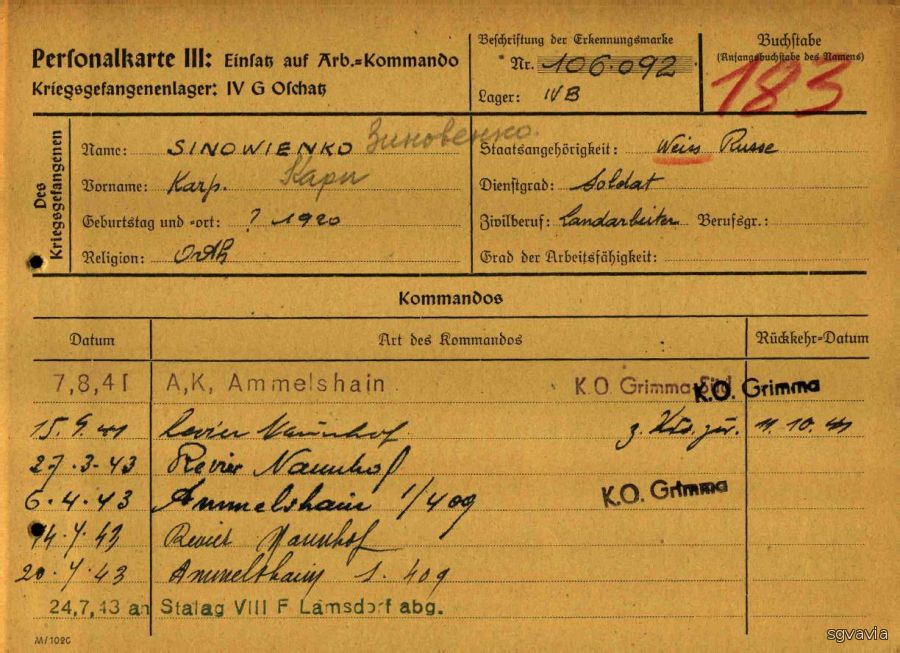 Personalkarte III: Einsatz auf Arb.=Kommando
Kriegsgefangenenlager: IV G Oschatz
Beschriftung der Erkennungsmarke
Nr. 106.092
Lager: IV B
Buchstabe
(Anfangsbuchstabe des Namens)
183
Des Kriegsgefangenen
Name: SINOWIENKO Зиновенко.
Vorname: Karp. Карп
Geburtstag und =ort: ? 1920
Religion: Orth
Staatsangehörigkeit: Weiss Russe
Dienstgrad: Soldat
Zivilberuf: Landarbeiter Berufsgr.:
Grad der Arbeitsfähigkeit:
Kommandos
Datum Art des Kommandos Rückkehr=Datum
7,8,41 A,K, Ammelshain K.O. Grimma-Süd K.O. Grimma
15.9.41 Revier Naunhof z. Kdo. zur. 11.10.41
27.3.43 Revier Naunhof
6.4.43 Ammelshain 1/409 K.O. Grimma
14.4.43 Revier Naunhof
20.4.43 Ammelshain 1. 409
24,7,43 an Stalag VIII F Lamsdorf abg.
M/1020
sgvavia